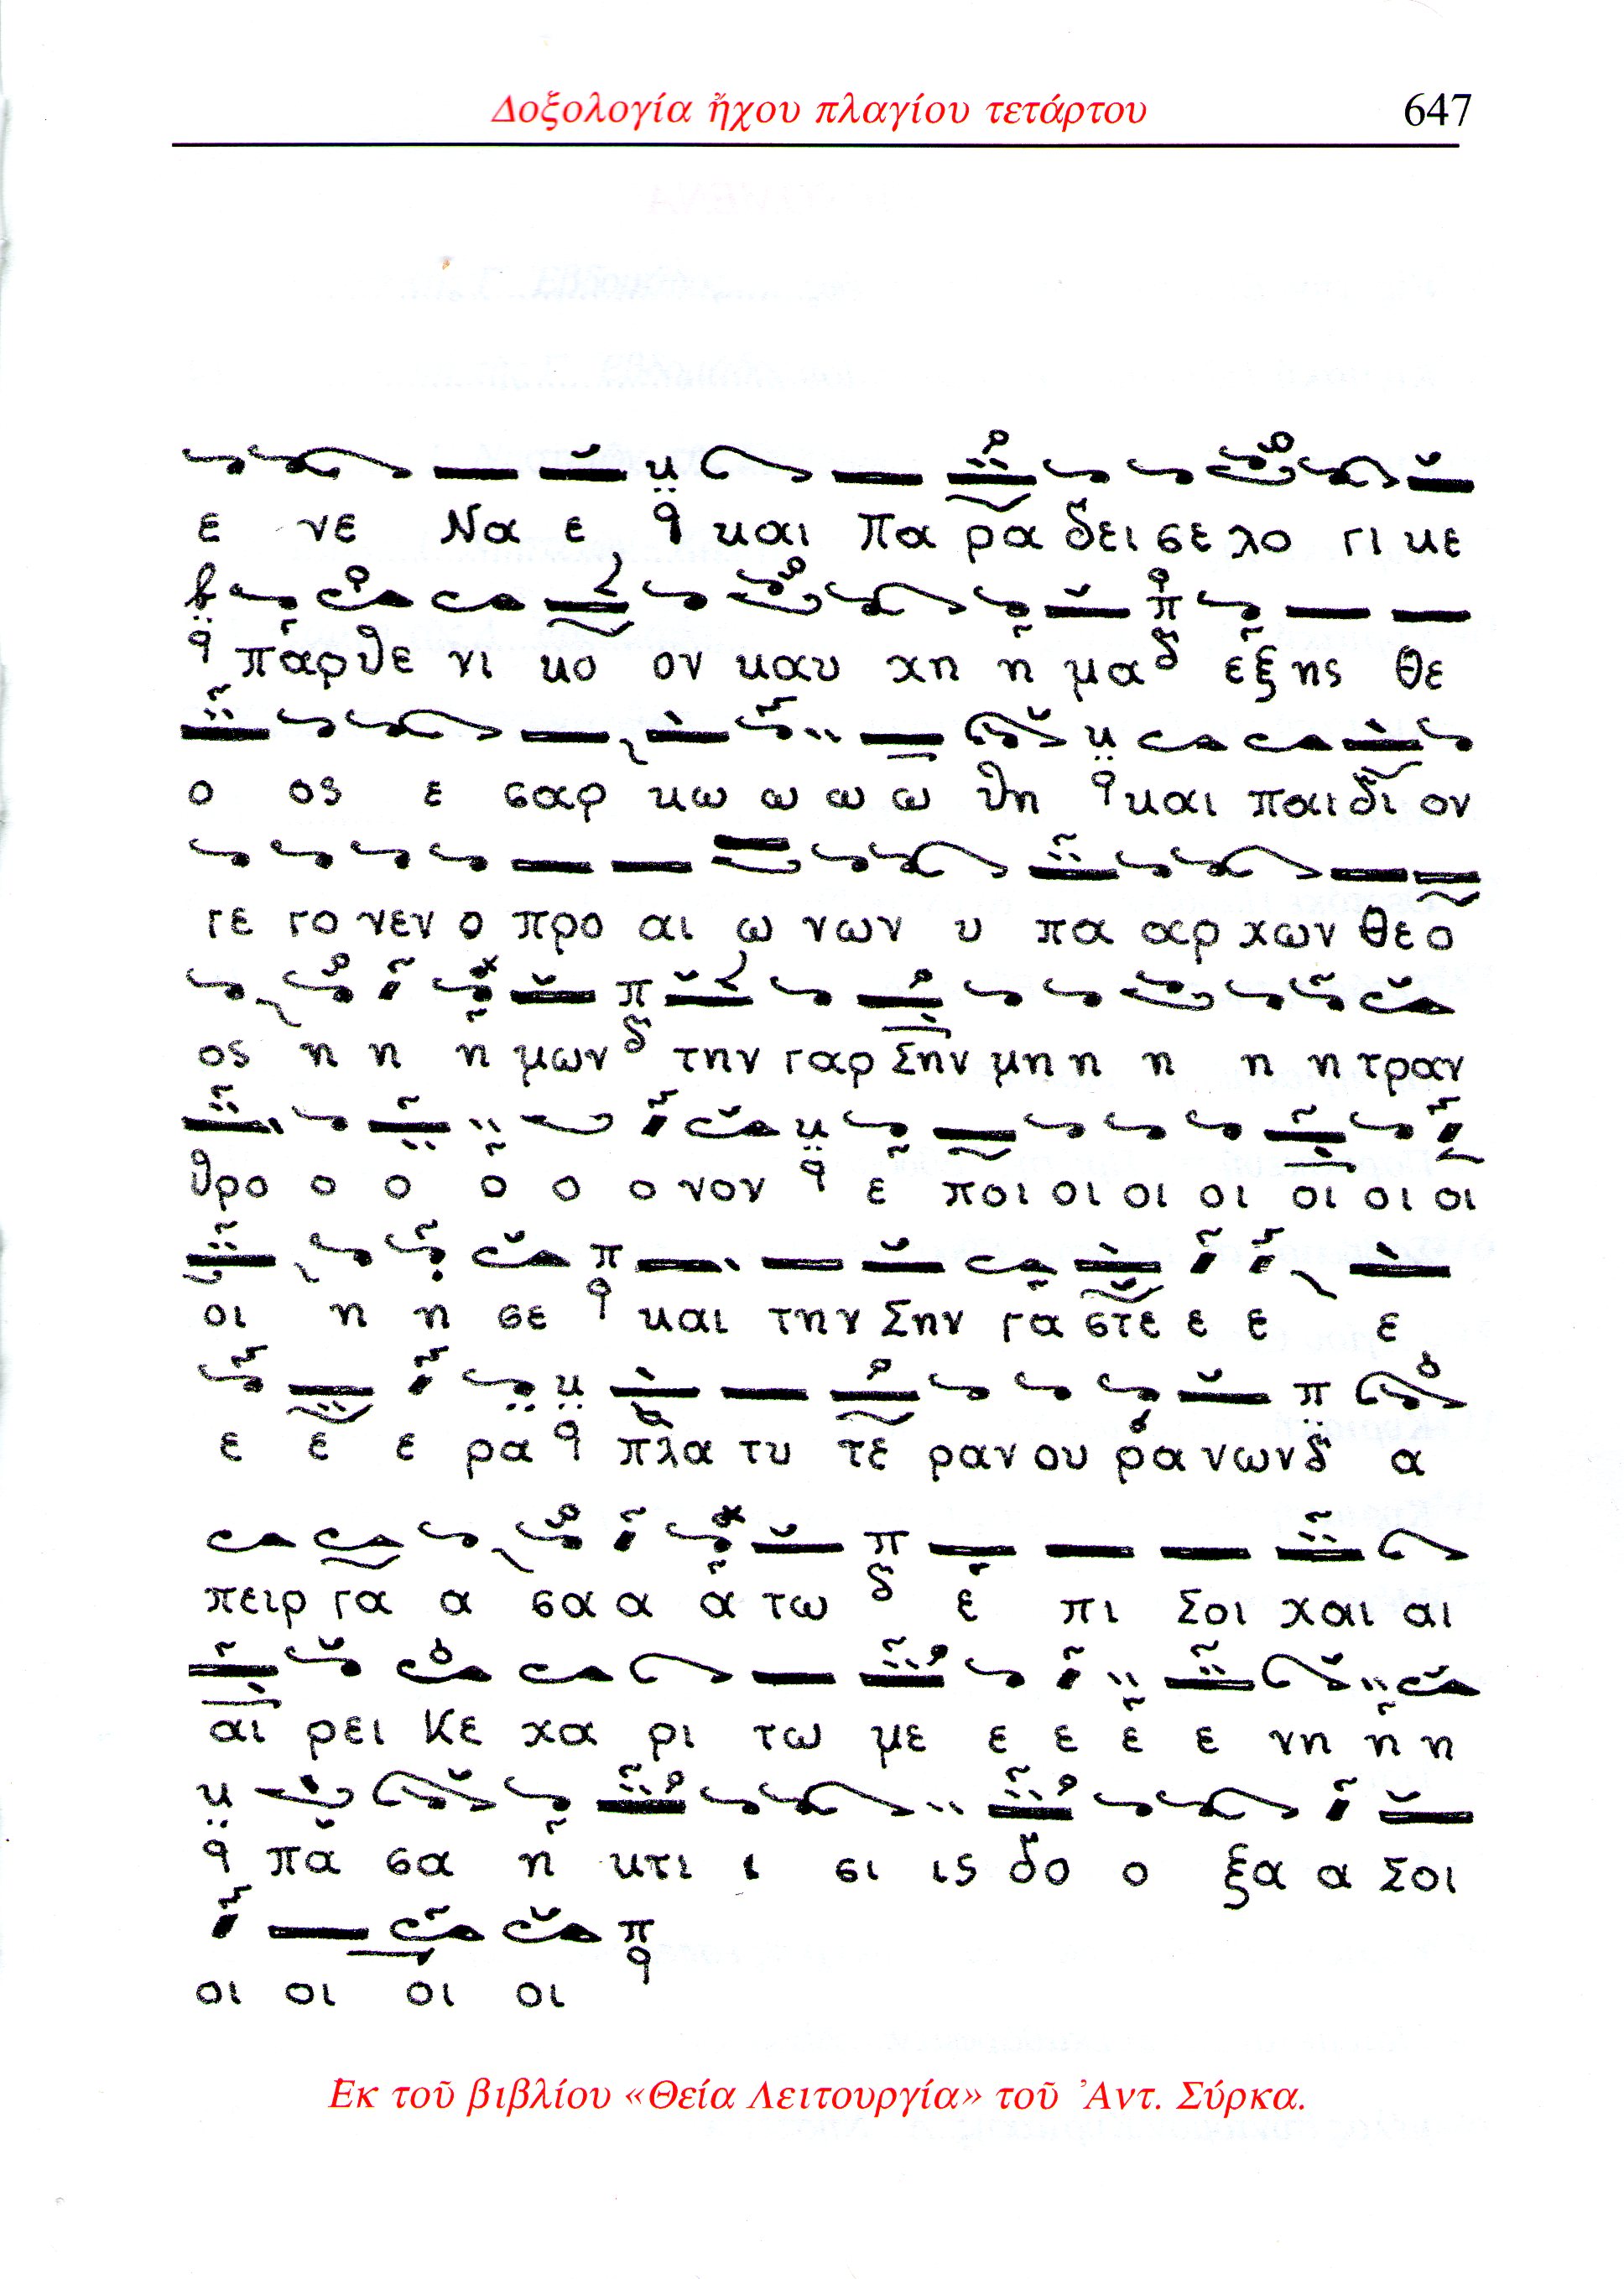 Δοξολογία ἤχου πλαγίου τετάρτου 647
ε νε Να ε και Πα ρα δει σε λο γι κε
παρ θε νι κο ον καυ χη η μα εξ ης θε
ο ος ε σαρ κω ω ω ω θη και παι δι ον
γε γο νεν ο προ αι ω νων υ πα αρ χων θε ο
ος η η η μων την γαρ Σην μη η η η η τραν
θρο ο ο ο ο ο νον ε ποι οι οι οι οι οι οι
οι η η σε και την Σην γα στε ε ε ε
ε ε ε ρα πλα τυ τε ραν ου ρα νων α
πειρ γα α σα α α τω ε πι Σοι χαι αι
αι ρει Κε χα ρι τω με ε ε ε ε νη η η
πα σα η κτι ι σι ις δο ο ξα α Σοι
οι οι οι οι
Ἐκ τοῦ βιβλίου «Θεία Λειτουργία» τοῦ Ἀντ. Σύρκα.